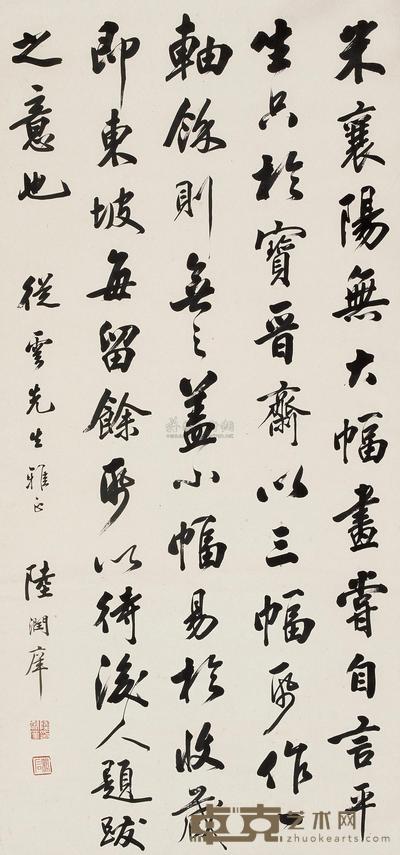 米襄陽無大幅畫嘗自言平
生只於寶晉齋以三幅紙作一
軸餘則無之蓋小幅易於收藏
即東坡每留餘紙以待後人題跋
之意也
從雲先生雅正
陸潤庠
艺术网
zhuokearts.com